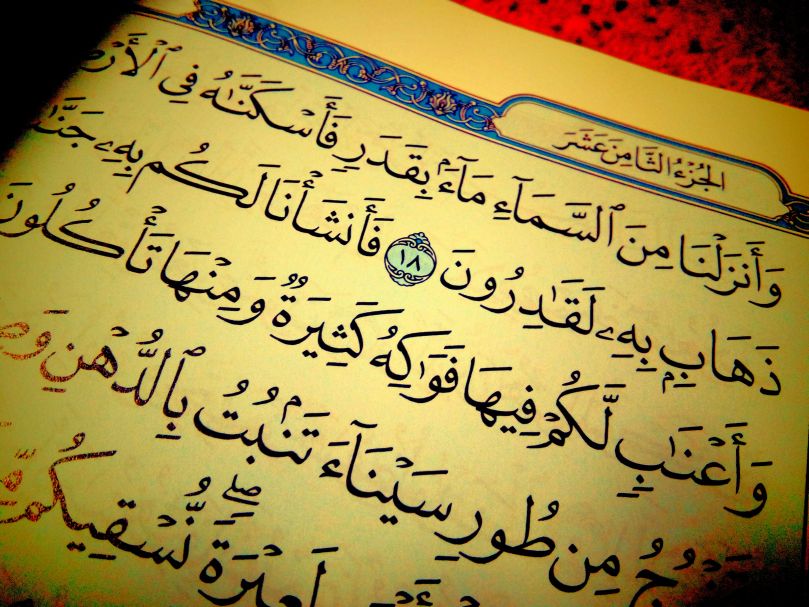 الجُزْءُ الثَّامِنَ عَشَرَ
وَأَنزَلْنَا مِنَ ٱلسَّمَآءِ مَآءَۢ بِقَدَرٍ فَأَسْكَنَّٰهُ فِى ٱلْأَرْضِ
ذَهَابٍۭ بِهِۦ لَقَٰدِرُونَ ١٨ فَأَنشَأْنَا لَكُم بِهِۦ جَنَّٰ
وَأَعْنَٰبٍ لَّكُمْ فِيهَا فَوَٰكِهُ كَثِيرَةٌ وَمِنْهَا تَأْكُلُونَ
مِن طُورِ سَيْنَآءَ تَنۢبُتُ بِٱلدُّهْنِ وَصِ
لَعِبْرَةً ۖ نُّسْقِيكُم